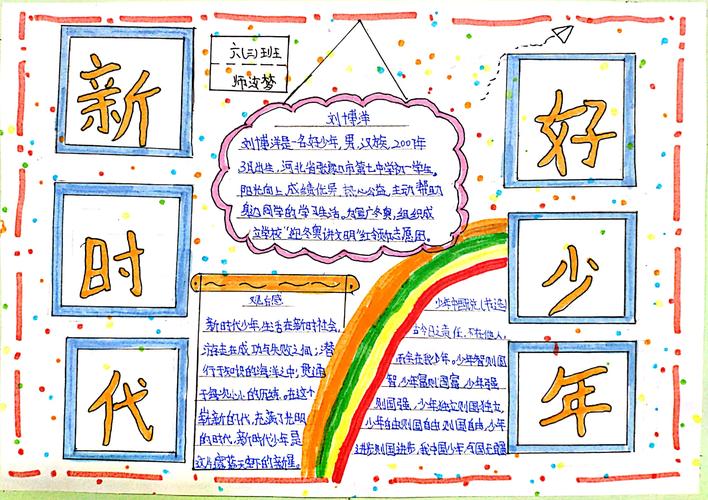 新
时
代
好
少
年
六(三)班
刘博洋
刘博洋是一名好少年,男,汉族,2007年
3月出生,河北省张家口市第七中学初一学生。
阳光向上,成绩优异,热心公益,主动帮助
身边同学的学习生活。为宣广冬奥,组织成
立学校"迎冬奥讲文明"红领巾志愿团。
观后感
新时代少年,生活在新时社会,
游走在成功与失败之间,潜
行于知识的海洋之中,
的历练。在这个
崭新的代,充满了光明
的时代,新时代少年是
这片蔚蓝天空下的新星。
少年中国说(节选)
故今日之责任,不在他人,
而全在我少年。少年智则国
智,少年富则国富,少年强
则国强,少年独立则国独立,
少年自由则国自由,少年
进步则国进步,我中国少年,与国无疆